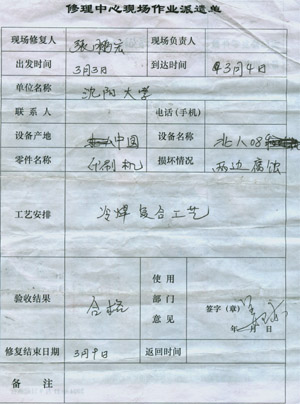 修理中心现场作业派遣单
现场修复人 张 宏 现场负责人
出发时间 3月3日 到达时间 年3月4日
单位名称 沈阳大学
联系人 电话(手机)
设备产地 中国 设备名称 北人08
零件名称 印刷机 损坏情况 两边腐蚀
工艺安排 冷焊复合工艺
验收结果 合格 使用部门意见 签字(章)
年 月 日
修复结束日期 3月9日 返回时间
备注